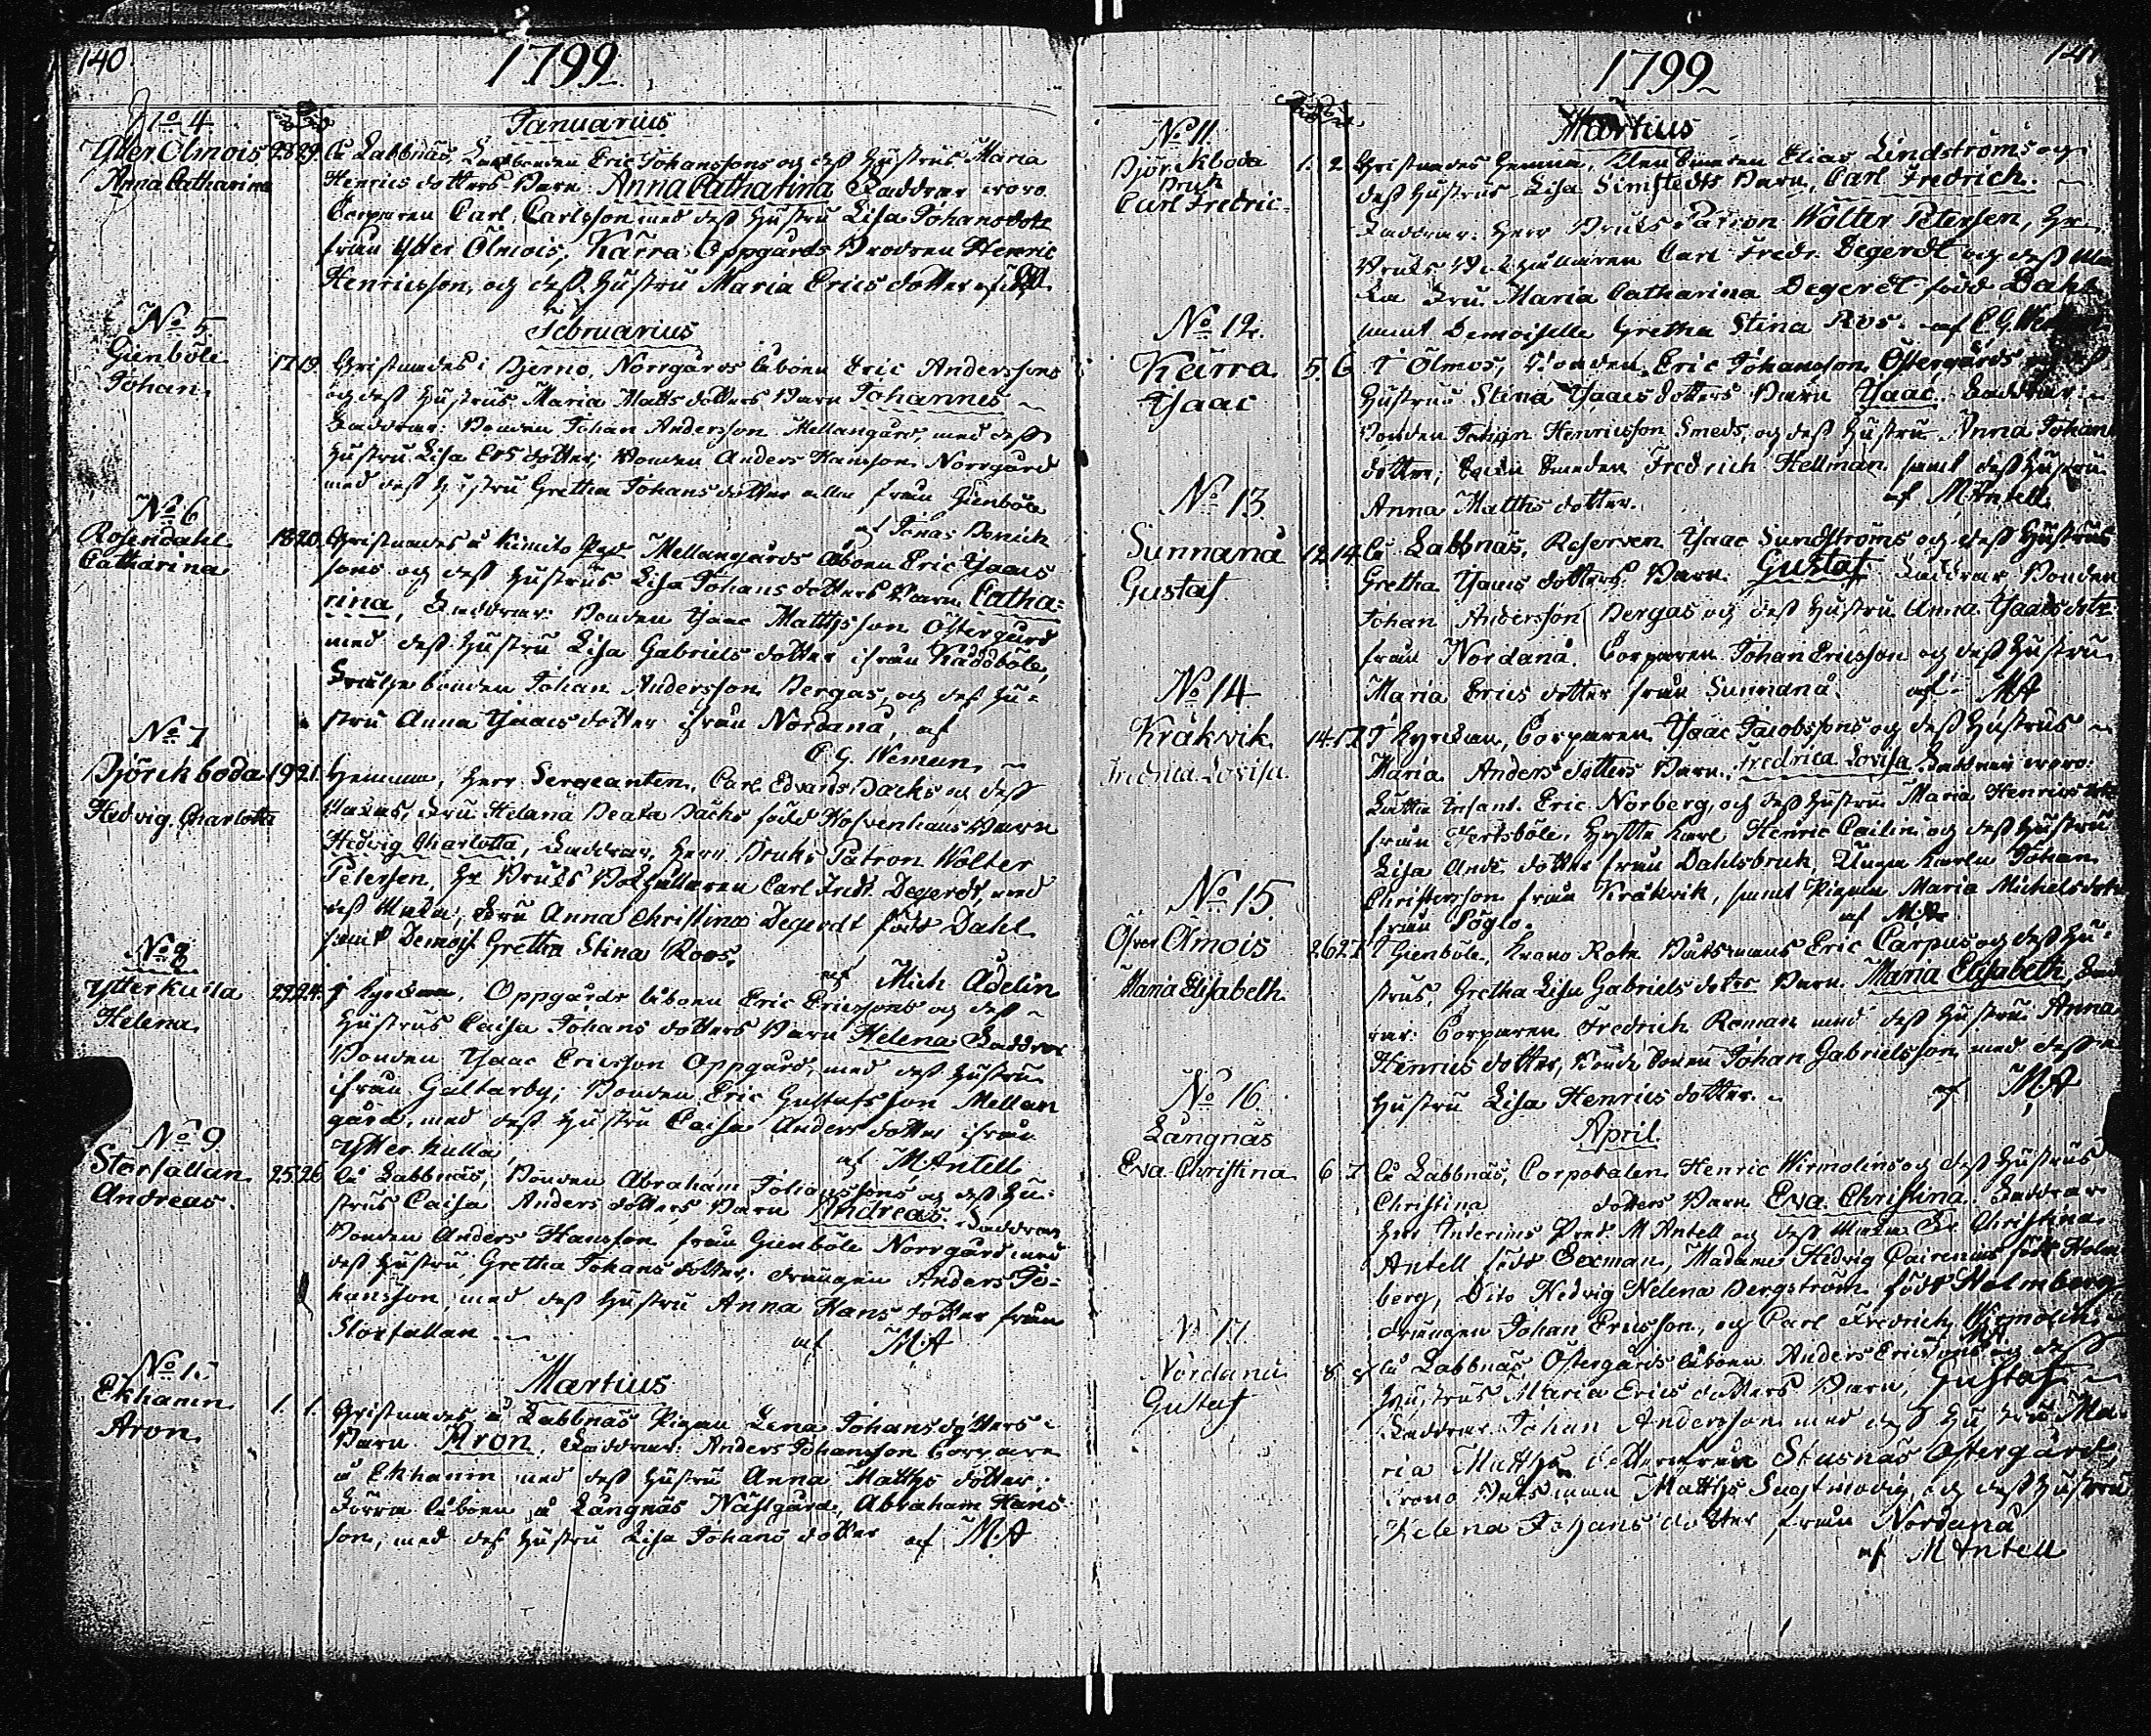 140.
1799
No 4.
Ytter Ölmois
Anna Catharina
Januarius
28 29. Å Labbnäs, Eric Johanssons og deß Hustrus Maria
Henrics dotters Barn Anna Catharina Faddrar woro
Torparen Carl Carlsson med deß Hustru Lisa Johansdotr
från Ytter Ölmois, Kärra Oppgårds Henric
Henricsson, og deß Hustru Maria Erics dotter
Februarius
No 5.
Gienböle
Johan.
17 19. Christnades i Bjerno, Norrgårds åboen Eric Anderssons
og deß Hustrus Maria Matts dotters Barn Johannes
Faddrar: Bonden Johan Andersson Mellangård, med deß
Hustru Lisa Ers dotter; Bonden Anders Hansson Norrgård
med deß Hustru Gretha Johans dotter alla från Gienböle
af Jonas
No 6
Rosendahl
Catharina
18 20. Christnades å Kimito Mellangårds åboen Eric Ysaacs
sons og deß Hustrus Lisa Johans dotters Barn Catha=
rina, Faddrar: Bonden Ysaac Matthsson Östergård
med deß Hustru Lisa Gabriels dotter ifrån Kaddböle,
bonden Johan Andersson Bergas, og deß Hu=
stru Anna Ysaacs dotter ifrån Nordanå, af
C. G. Weman
No 7
Björckboda
Hedvig Charlotta
19 21. Hemma, Herr Sergeanten, Carl Edvard Backs og deß
Fru Helana Beata Backs född Barn
Hedvig Charlotta, Faddrar, Herr Bruks Patron Wolter
Petersen, Hr Bruks Bokhållaren Carl Fredr Degerdt, med
deß Fru Anna Christina Degerdt född Dahl
samt Demois. Gretha Stina Roos.
af Mich Adelin
No 8
Ytterkulla
Helena
22 24. I Kyrckan, Oppgårds åboen Eric Ericssons og deß
Hustrus Caisa Johans dotters Barn Helena Faddrar
Bonden Ysaac Ericsson Oppgård, med deß Hustru
ifrån Galtarby; Bonden Eric Gustafsson Mellan
gård, med deß Hustru Caisa Anders dotter ifrån
Ytter kulla
af MAntell
No 9.
Storfallan
Andreas.
25 26 Å Labbnäs, Bonden Abraham Johanssons og deß Hu=
strus Caisa Anders dotters Barn Andreas. Faddrar
Bonden Anders Hansson från Gienböle Norrgård med
deß Hustru Gretha Johans dotter; drängen Anders Jo=
hansson, med deß Hustru Anna Hans dotter från
Storfallan
af MA
Martius
Ekhamn
Aron
1. 1. Christnades å Labbnäs Pigan Lena Johansdotters
Barn Aron, Faddrar: Anders Johansson Torpare
å Ekhamn med deß Hustru Anna Matths dotter;
Förra åboen å Långnäs Nästgård, Abraham Hans
son, med deß Hustru Lisa Johans dotter af MA
141
1799
Martius
No 11.
Björckboda
Bruk
Carl Fredric
1. 2. Christnades hemma, Elias Lindströms og
deß Hustrus Lisa Simstedts Barn, Carl Fredrich.
Faddrar: Herr Bruks Patron Wolter Petersen, Hr
Bruks Bokhållaren Carl Fredr. Degerdt og deß
Fru Maria Catharina Degerdt född Dahl
samt Demoiselle Gretha Stina Ros. af C G
No 12.
Kärra
Ysaac
5. 6. I Ölmos, Bonden Eric Johansson Östergårds og deß
Hustrus Stina Ysaacs dotters Barn Ysaac. Faddrar:
Bonden Johan Henricsson Smeds, og deß Hustru Anna Johans
dotter; Fredrich Hellman samt deß Hustru
Anna Matths dotter.
af MAntell
No 13.
Sunnanå
Gustaf
12 14. Å Labbnäs, Reserven Ysaac Sundströms og deß Hustrus
Gretha Ysaacs dotters Barn Gustaf Faddrar Bonden
Johan Andersson Bergas og deß Hustru Anna Ysaacs dotr
från Nordanå. Torparen Johan Ericsson og deß Hustru
Maria Erics dotter från Sunnanå. af MA
No 14
Kråkvik
Fredrica Lovisa
14. 17 I Kyrckan, Torparen Ysaac Jacobssons og deß Hustrus
Maria Anders dotters Barn, Fredrica Lovisa Faddrar woro:
Eric Norberg, og deß Hustru Maria Henrics
från Hertsböle, Henric Cailin og deß Hustru
Lisa Ands dotter från Dahlsbruk Unga Karln Johan
Christersson från Kråkvik, samt Pigan Maria Michelsdotr
från Pöglo.
af MA
No 15.
Öfver Ölmois
Maria Elisabeth
26 27. I Gienböle, Krono Rote Båtsmans Eric Carpus og deß Hu=
strus, Gretha Lisa Gabriels dotrs Barn Maria Elisabeth, Fadd
rar: Torparen Fredrich Roman med deß Hustru Anna
Henrics dotter, Johan Gabrielsson med deß
Hustru Lisa Henrics dotter.
af MA
April.
No 16.
Långnäs
Eva Christina
6 7 Å Labbnäs, Corporalen Henric Wirmolins og deß Hustrus
Christina dotters Barn Eva Christina. Faddrar
Herr Interims Pred. M Antell og deß Fr Christina
Antell född Eexman, Madame Hedvig född Holm
berg, Dito Hedvig Helena Bergström född Holmberg
drängen Johan Ericsson, og Carl Fredrich Wirmolin
MA
No 17
Nordanå
Gustaf
8. 8 Å Labbnäs Östergårds åboen Anders Ericssons og deß
Hustrus Maria Erics dotters Barn, Gustaf
Faddrar Johan Andersson med deß Hustru Ma=
ria Matths dotter från Stusnäs Östergård,
Krono Båtsman Matths Sagtmodig, og deß Hustru
Helena Johans dotter från Nordanå
af MAntell